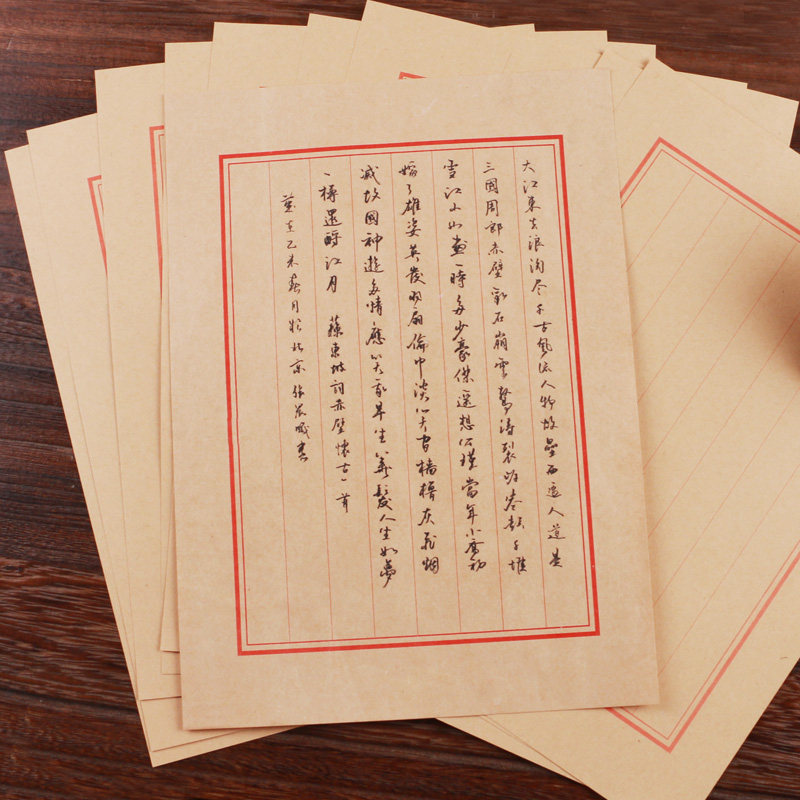 大江東去浪淘尽千古風流人物故壘西邊人道是
三國周郎赤壁亂石崩雲驚濤裂岸卷起千堆
雪江山画一時多少豪傑遥想公瑾當年小喬初
嫁了雄姿英發羽扇倫巾淡笑間檣櫓灰飛烟
滅故國神遊多情應笑我早生華髮人生如夢
一樽還酹江月 蘇東坡詞赤壁懷古一首
歲在乙未春月於北京 張書